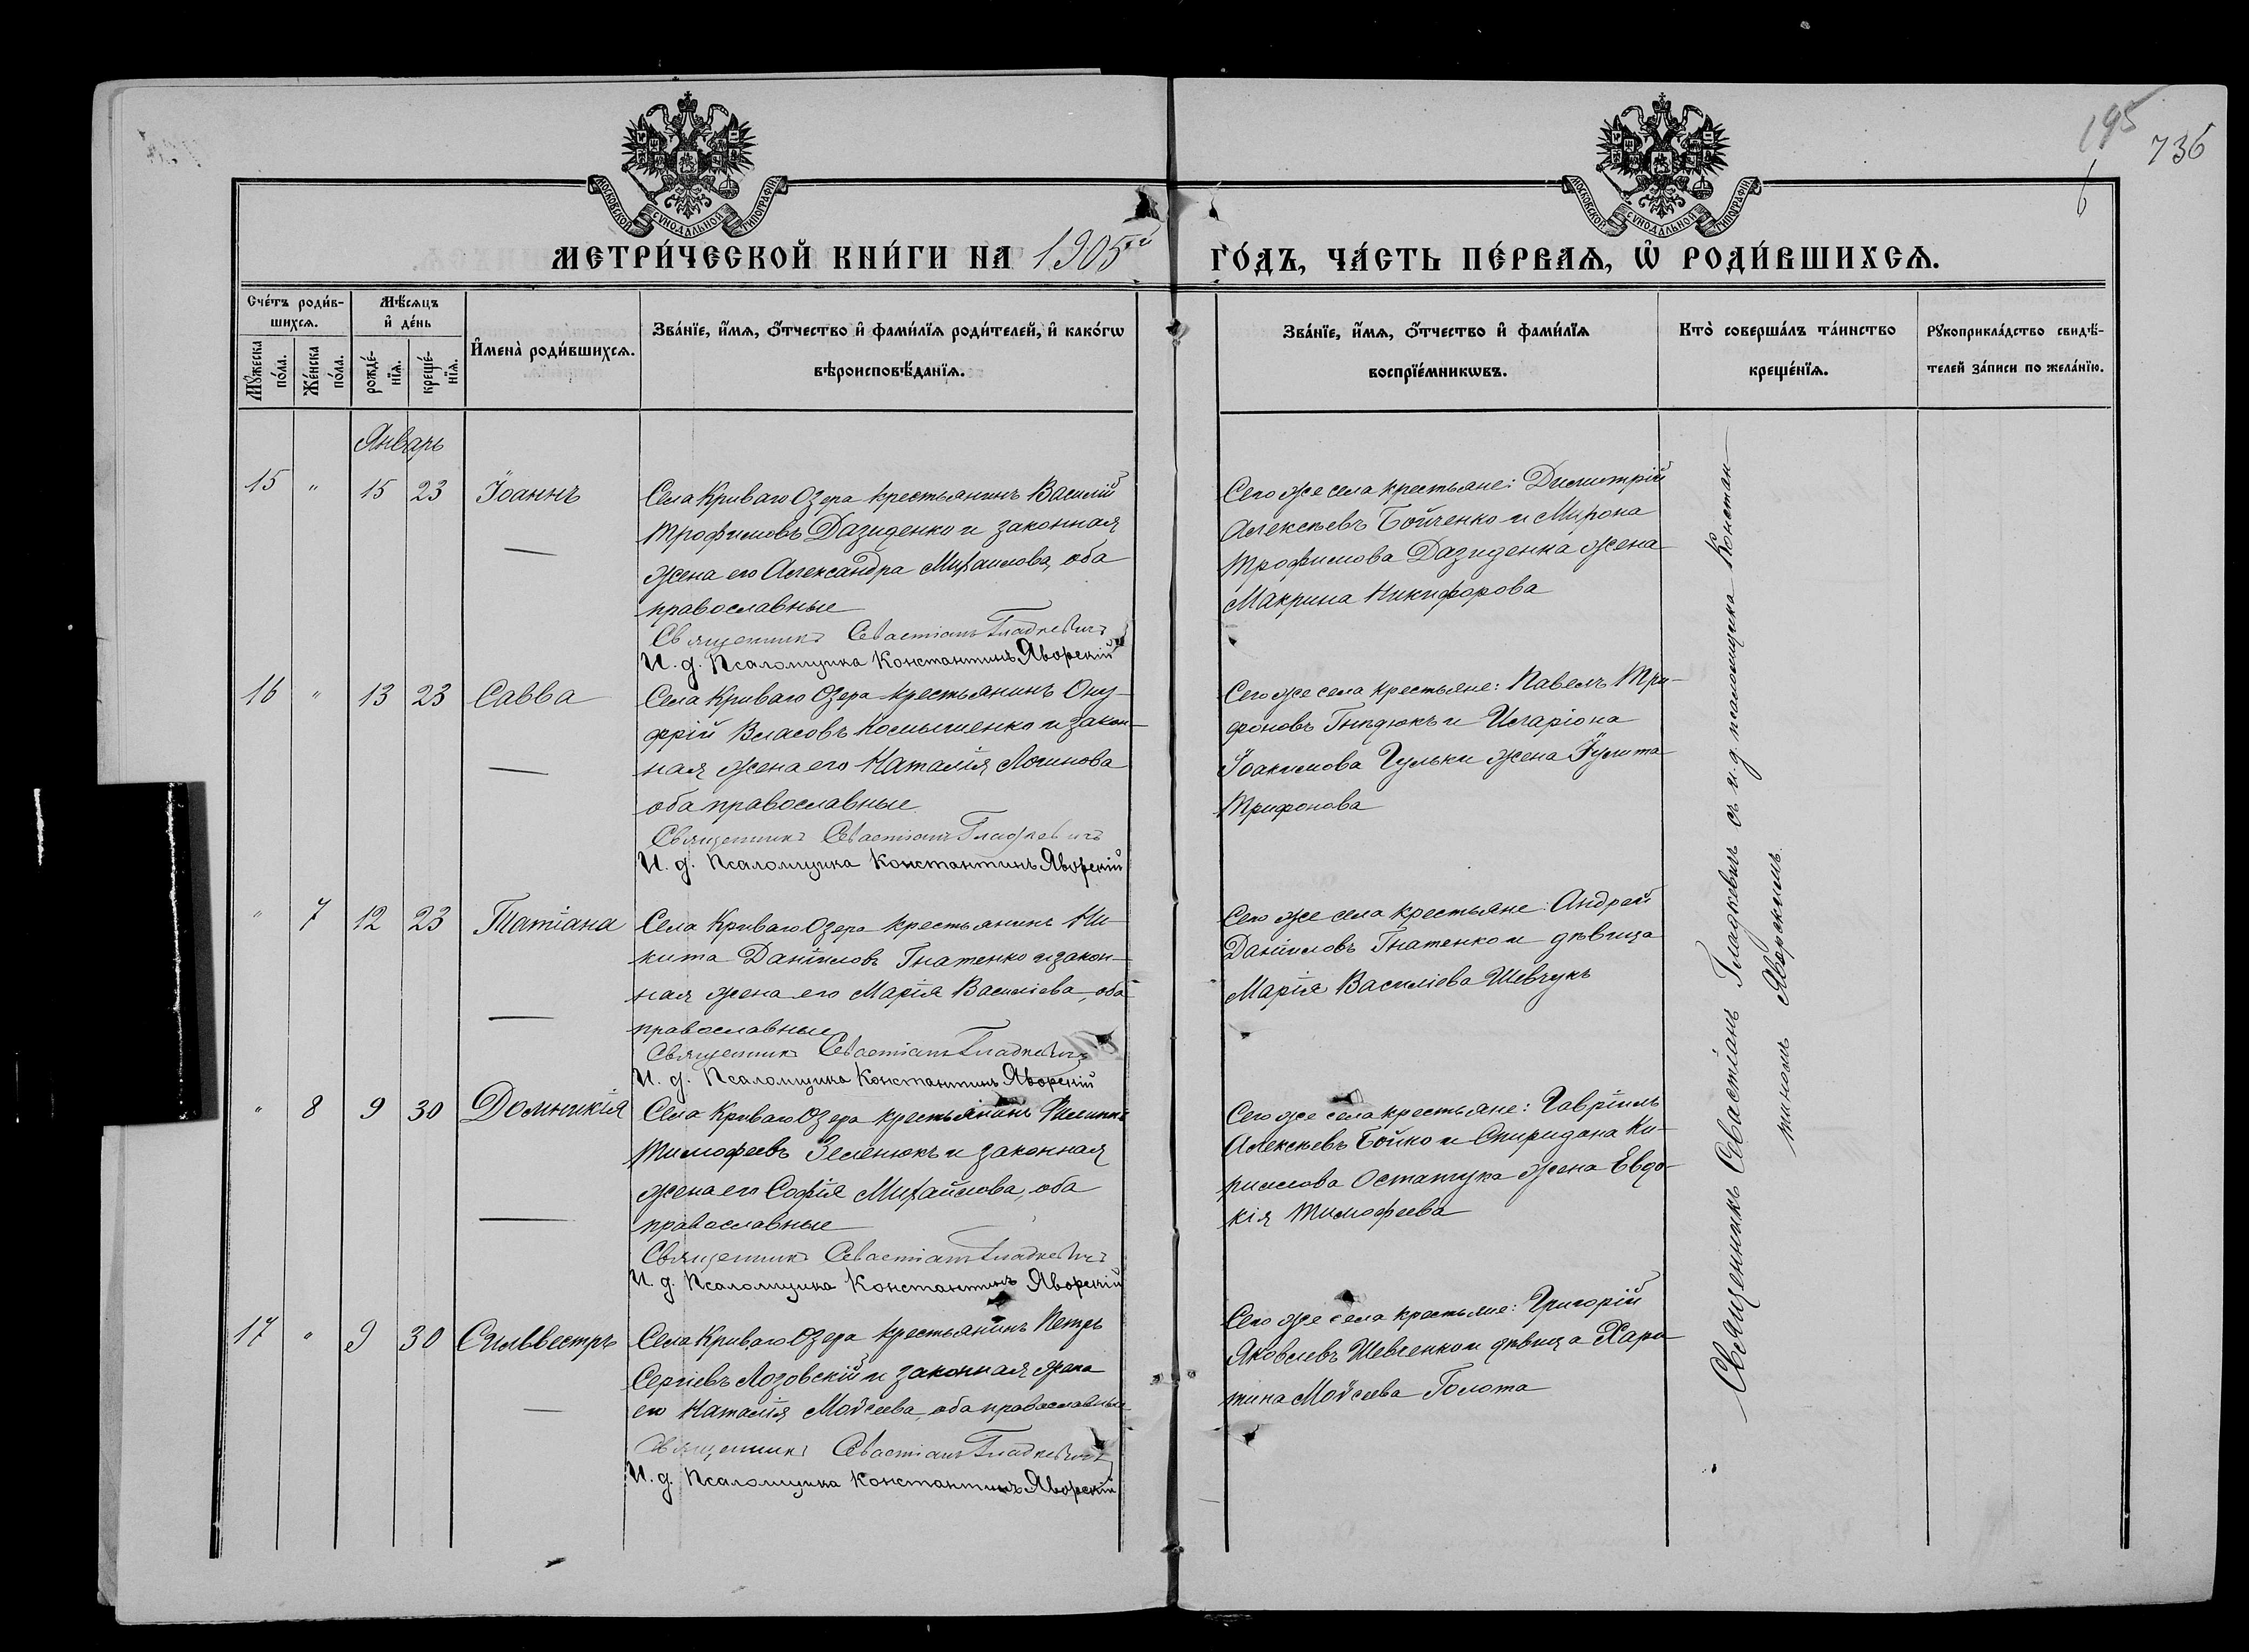 195
736
6
МОСКОВСКОЙ СѴНОДАЛЬНОЙ ТИПОГРАФІИ
МОСКОВСКОЙ СѴНОДАЛЬНОЙ ТИПОГРАФІИ
МЕТРИ́ЧЕСКОЙ КНИ́ГИ НА 1905ый
ГО́ДЪ, ЧА́СТЬ ПЕ́РВАѦ, Ѿ РОДИ́ВШИХСѦ.
Сче́тъ роди́в-
шихсѧ.
Мѣ́сѧцъ
и҆ де́нь
Мꙋ́жеска по́ла.
Же́нска по́ла.
рожде́-нїѧ.
креще́-нїѧ.
И҆мена̀ роди́вшихсѧ.
Зва́нїе, и҆́мѧ, ѻ҆́тчество и҆ фами́лїѧ роди́телей, и҆ како́гѡ
вѣроисповѣ́данїѧ.
Зва́нїе, и҆́мѧ, ѻ҆́тчество и҆ фами́лїѧ
воспрїе́мникѡвъ.
Кто̀ соверша́лъ та́инство
креще́нїѧ.
Рꙋкоприкла́дство свидѣ́-
телей за́писи по жела́нїю.
Январь
15 " 15 23 Іоаннъ
Села Криваго Озера крестьянинъ Василій
Трофимовъ Дазиденко и законная
жена его Александра Михаилова, оба
православные
Священникъ Севастіанъ Гладкевичъ
И. д. Псаломщика Константинъ Яворскій
Сего же села крестьяне: Димитрій
Алексѣевъ Бойченко и Мирона
Трофимова Дазиденка жена
Макрина Никифорова
16 " 13 23 Савва
Села Криваго Озера крестьянинъ Ону-
фрій Власовъ Космыненко и закон-
ная жена его Наталія Логинова
оба православные
Священникъ Севастіанъ Гладкевичъ
И. д. Псаломщика Константинъ Яворскій
Сего же села крестьяне: Павелъ Три-
фоновъ Гнѣдюкъ и Иларіона
Іоакимова Гульки жена Іулита
Трифонова
" 7 12 23 Татіана
Села Криваго Озера крестьянинъ Ни-
кита Даніиловъ Гнатенко и закон-
ная жена его Марія Василіева, оба
православные
Священникъ Севастіанъ Гладкевичъ
И. д. Псаломщика Константинъ Яворскій
Сего же села крестьяне: Андрей
Даніиловъ Гнатенко и дѣвица
Марія Василіева Шевчукъ
" 8 9 30 Домникія
Села Криваго Озера крестьянинъ Филиппъ
Тимофеевъ Зеленюкъ и законная
жена его Софія Михайлова, оба
православные
Священникъ Севастіанъ Гладкевичъ
И. д. Псаломщика Константинъ Яворскій
Сего же села крестьяне: Гавріилъ
Алексѣевъ Бойко и Спиридона Ки-
риллова Остапчука жена Евдо-
кія Тимофеева
17 " 9 30 Сильвестръ
Села Криваго Озера крестьянинъ Петръ
Сергіевъ Лозовскій и законная жена
его Наталія Моѵсеева, оба православные
Священникъ Севастіанъ Гладкевичъ
И. д. Псаломщика Константинъ Яворскій
Сего же села крестьяне: Григорій
Яковлевъ Шевченко и дѣвица Хари-
тина Моѵсеева Голота
Священникъ Севастіанъ Гладкевичъ съ и. д. псаломщика Констан-
тиномъ Яворскимъ.